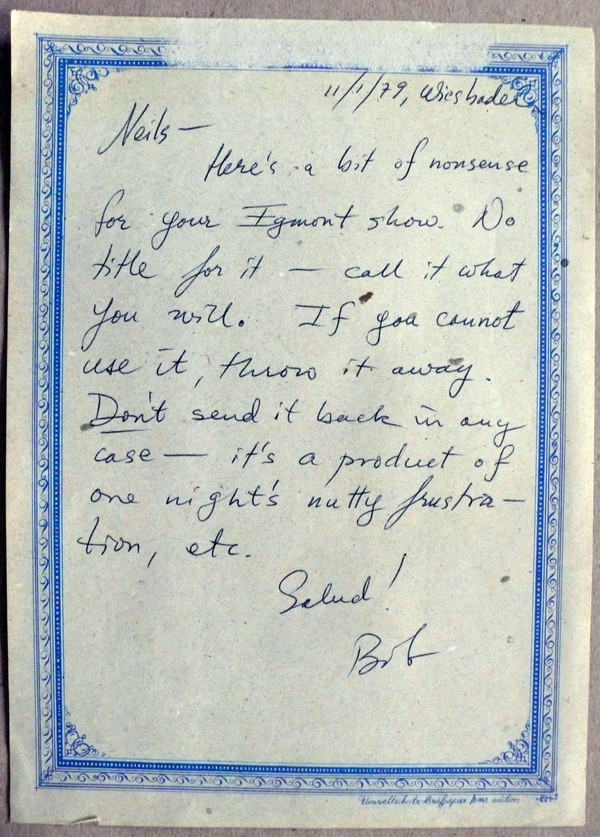 11/1/79, Wiesbaden
Neils —
Here's a bit of nonsense
for your Egmont show. No
title for it — call it what
you will. If you cannot
use it, throw it away.
Don't send it back in any
case — it's a product of
one night's nutty frustra—
tion, etc.
Salud!
Bob
Umweltschutz-Briefpapier